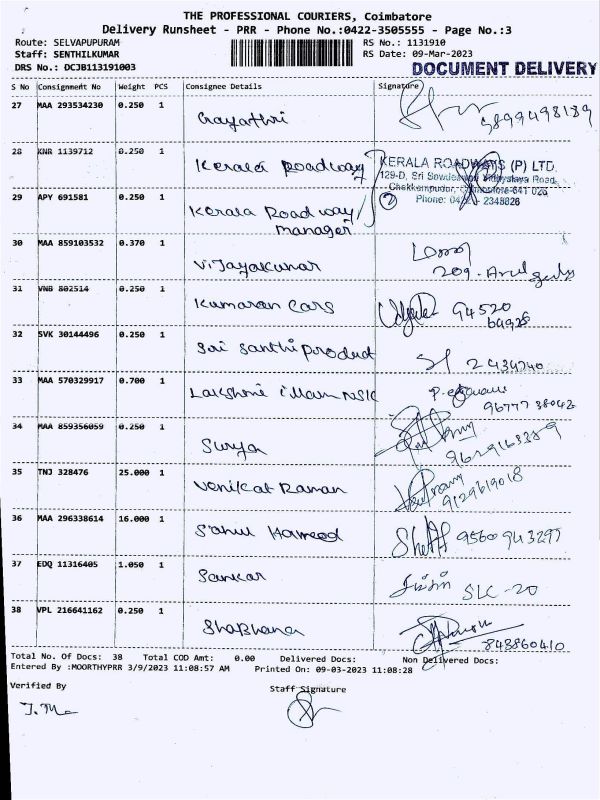 THE PROFESSIONAL COURIERS, Coimbatore
Delivery Runsheet - PRR - Phone No.:0422-3505555 - Page No.:3
Route: SELVAPUPURAM RS No.: 1131910
Staff: SENTHILKUMAR RS Date: 09-Mar-2023
DRS No.: DCJB113191003 DOCUMENT DELIVERY
S No Consignment No Weight PCS Consignee Details Signature
27 MAA 293534230 0.250 1 Gayathri
28 KNR 1139712 0.250 1 Kerala Roadway KERALA ROADWAYS (P) LTD.
129-D, Sri Road
Chokkampudur, Coimbatore-641 026
Phone: 2348826
29 APY 691581 0.250 1 Kerala Road way/ 2
Manager
30 MAA 859103532 0.370 1 Vijayakumar 209.
31 VNB 802514 0.250 1 Kumaran Cars 94520
64928
32 SVK 30144496 0.250 1 Sri Santhi Product 2434740
33 MAA 570329917 0.700 1 Lakshmi NSIC
96777 38042
34 MAA 859356059 0.250 1 Surya
35 TNJ 328476 25.000 1 Venkat Raman
9129619018
36 MAA 296338614 16.000 1 Sahul Hameed 9560943297
37 EDQ 11316405 1.050 1 Sankar SLC-20
38 VPL 216641162 0.250 1 Shabhana
848860410
Total No. Of Docs: 38 Total COD Amt: 0.00 Delivered Docs: Non Delivered Docs:
Entered By :MOORTHYPRR 3/9/2023 11:08:57 AM Printed On: 09-03-2023 11:08:28
Verified By Staff Signature